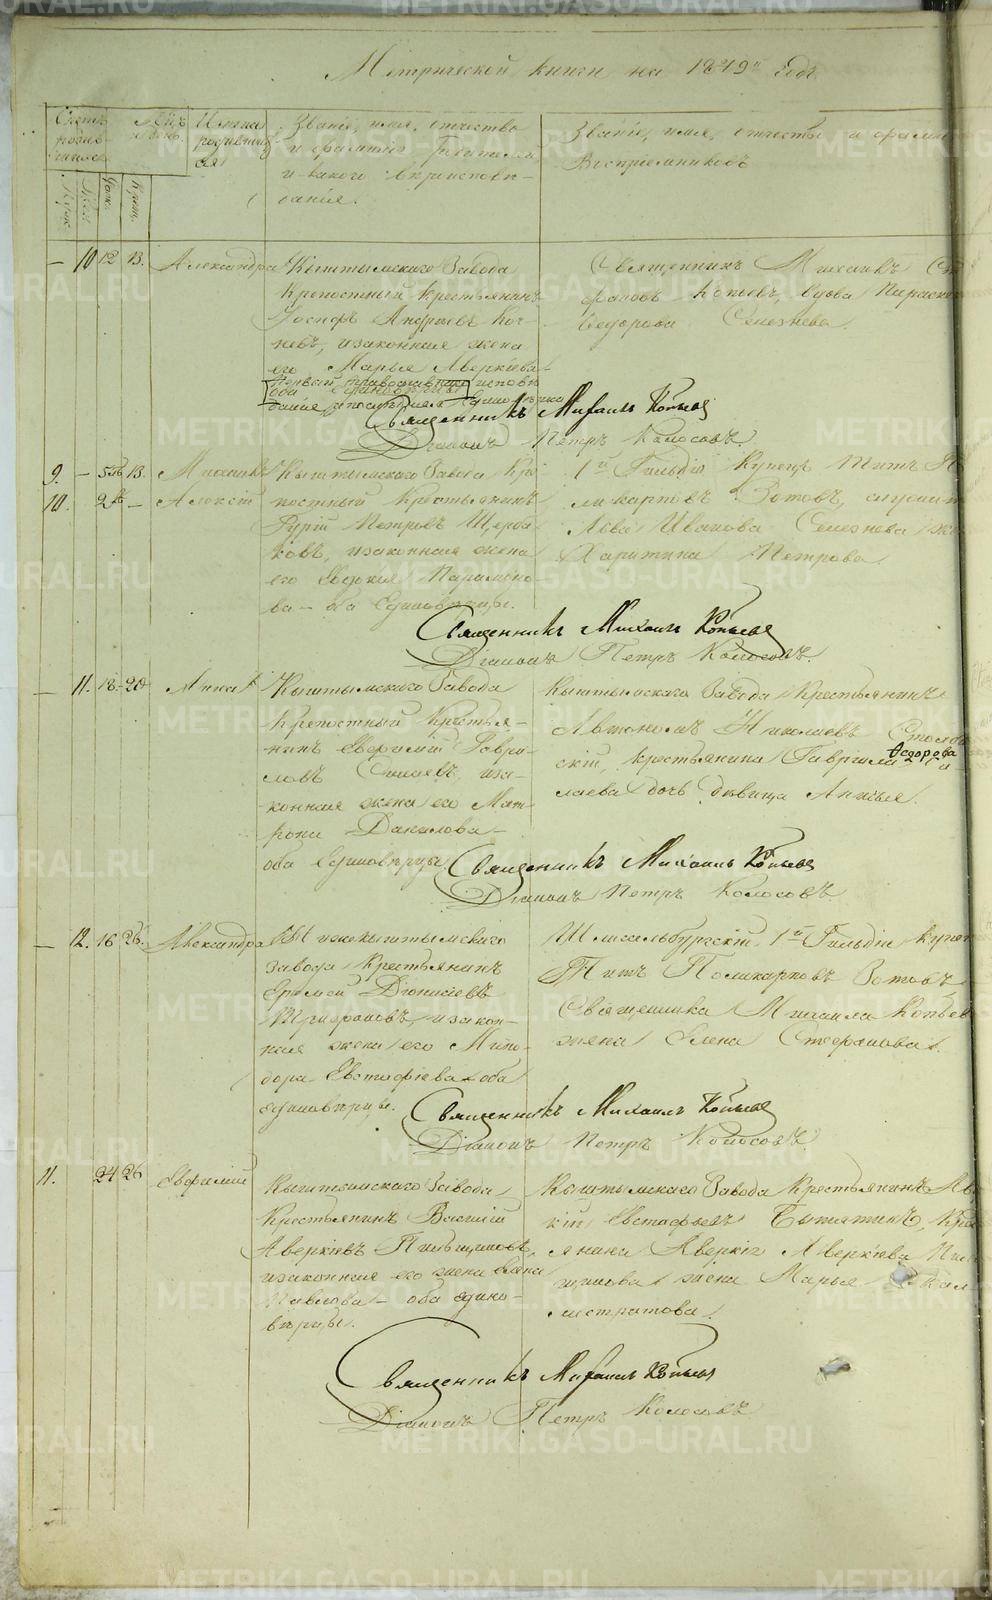 Метрической книги на 1849й годъ
Счетъ родившихся
Мѣсяцъ и день
Имена родившихся
Званіе, имя, отчество
и фамилія Родителей
и какого вѣроисповѣ-
данія.
Званіе, имя, отчество и фамилія
Воспріемниковъ
Муж.
Жен.
Рожд.
Крещ.
— 10 12 13. Александра
Кыштымскаго Завода
крѣпостный крестьянинъ
Іосифъ Андреевъ Коч-
невъ, и законная жена
его Марья Аверкіева
первый православнаго исповѣ-
оба единовѣрцы
даніе а послѣдняя единовѣрка
Священникъ Михаилъ
Федорова Селезнева.
Священникъ Михаилъ Копьев
Діаконъ Петръ Колосовъ.
9. — 5 13. Михаилъ
10. 2 — Алексій
Кыштымскаго Завода Крѣ-
постный Крестьянинъ
Гурій Петровъ Щерба-
ковъ, и законная жена
его Евдокія Парамоно-
ва — оба Единовѣрцы.
1й Гильдіи Купецъ Титъ По-
ликарповъ Зотовъ, служит
Льва Иванова Селезнева же
Харитина Петрова.
Священникъ Михаилъ Копьев
Діаконъ Петръ Колосовъ.
— 11. 18 20 Анна
Кыштымскаго Завода
крѣпостный Крестья-
нинъ Евфимій Гаври-
ловъ и за-
конная жена его Мат-
рона Данилова —
оба Единовѣрцы.
Кыштымскаго Завода Крестьянинъ
Автономъ Николаевъ
скій, крестьянина Гавріила
Ѳедорова
лаева дочь дѣвица Анисья.
Священникъ Михаилъ Копьев
Діаконъ Петръ Колосовъ
— 12. 16 26. Александра
Нижекыштымскаго
завода Крестьянинъ
Еремей Діонисіевъ
Трифоновъ, и закон-
ная жена его Мино-
дора Евстафіева — оба
единовѣрцы.
Шлиссельбургскій 1й Гильдіи купец
Титъ Поликарповъ Зотовъ
Священника Михаила Копьев
жена Елена Стефанова.
Священникъ Михаилъ Копьев
Діаконъ Петръ Колосовъ
11. 24 26 Евфимій
Кыштымскаго Завода
Крестьянинъ Василій
Аверкіевъ Пильщиковъ,
и законная его жена Елена
Павлова — оба едино-
вѣрцы.
Кыштымскаго Завода Крестьянинъ Ав
кій Евстафьевъ Кре
янина Аверкія Аверкіева Пил
щикова жена Марья Кал-
листратова.
Священникъ Михаилъ Копьев
Діаконъ Петръ Колосовъ
METRIKI.GASO-URAL.RU